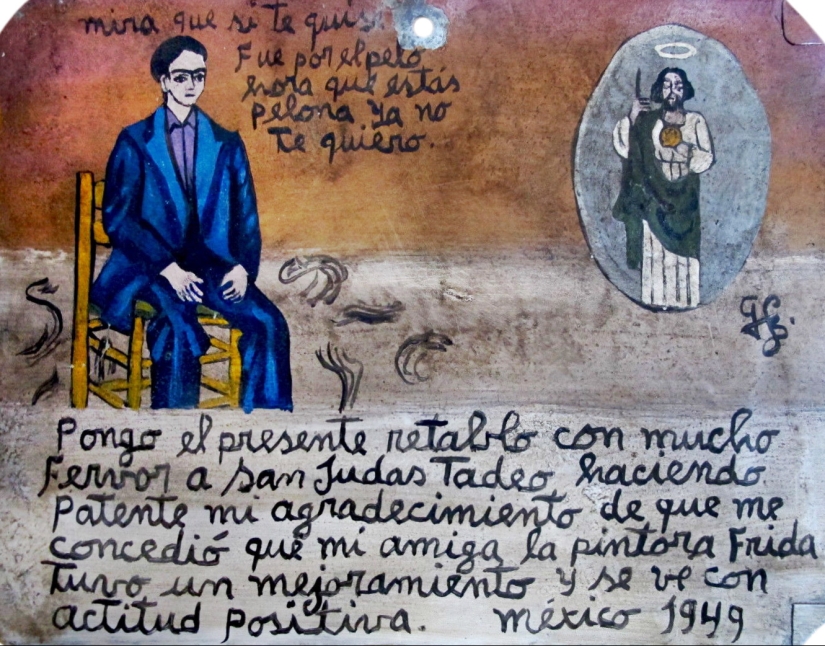 mira que si te quise
Fue por el pelo
hora que estás
pelona ya no
te quiero.
Pongo el presente retablo con mucho
Fervor a San Judas Tadeo haciendo
patente mi agradecimiento de que me
concedió que mi amiga la pintora Frida
tuvo un mejoramiento y se ve con
actitud positiva. méxico 1949